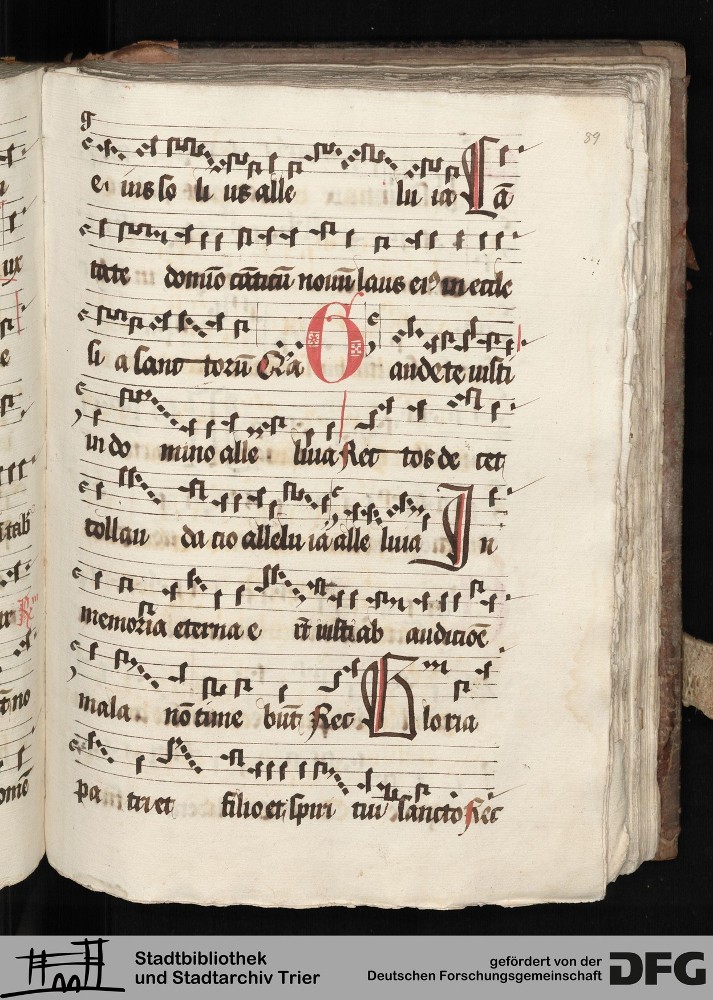 89
e. ius so li us alle lu ia Cā
tate domīo cāticū nouū laus eiꝰ in eccle
si a sanc torū Gła Gaudete iusti
in do mino alle luia Rec tos de cet
collau da tio allelu ia alle luia In
memoria eterna e rit iusti ab auditiōe
mala nō time būt Rec Gloria
pa tri et filio et spiri tui sancto Rec
Stadtbibliothek
und Stadtarchiv Trier
gefördert von der
Deutschen Forschungsgemeinschaft
DFG